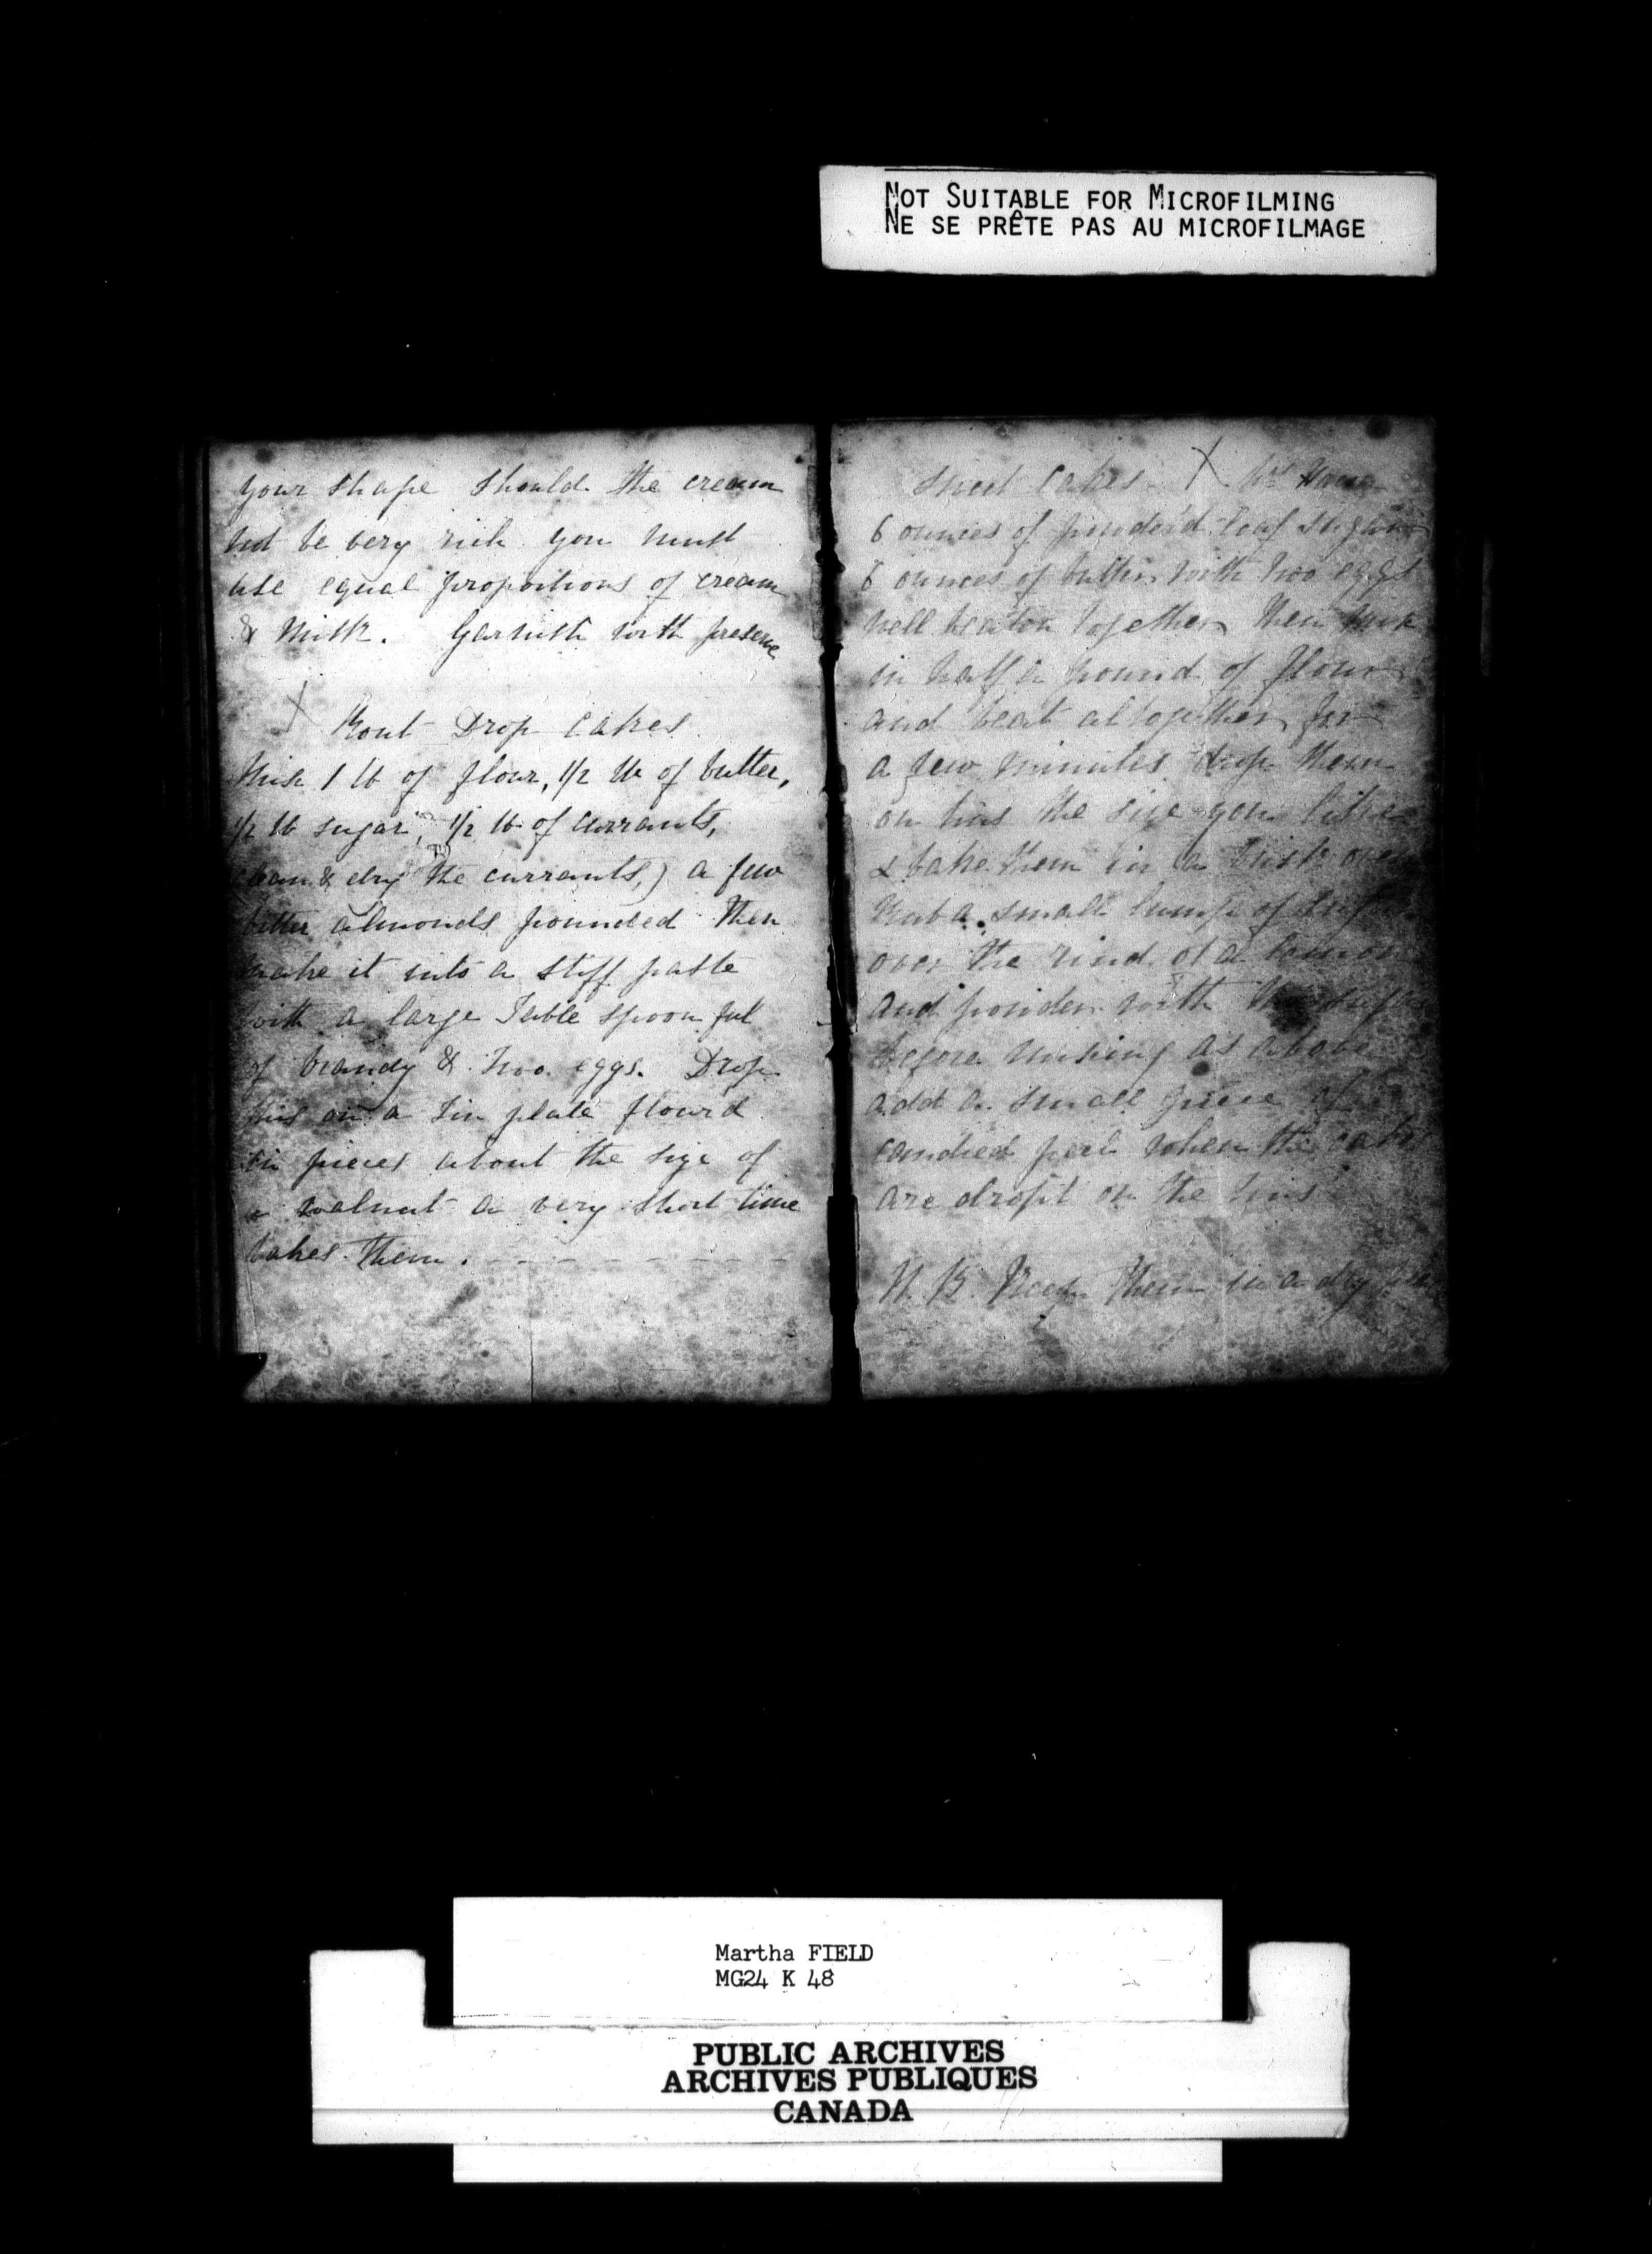 NOT SUITABLE FOR MICROFILMING
NE SE PRÊTE PAS AU MICROFILMAGE
your shape should the cream
not be very rich you must
use equal proportions of cream
& Milk. Garnish with preserve
X
Rout Drop Cakes
Mix 1 lb of flour, 1/2 lb of butter,
1/2 lb sugar, 1/2 lb of currants,
clean & dry the currants,) a few
bitter almonds pounded then
make it into a stiff paste
with a large Table spoon ful
of brandy & two eggs. Drop
this on a tin plate flour'd
in pieces about the size of
a walnut a very short time
bakes them.
Cakes X
6 ounces of powder'd loaf sugar
6 ounces of butter with two eggs
well beaten together then
in half a pound of flour
and beat altogether for
a few minutes drop them
on tins the size you like
& bake them in a brisk oven
Rub a small lump of sugar
over the rind of a lemon
and powder with the sugar
before mixing as above
add a small piece of
candied peel when the cakes
are dropt on the tins
N.B. Keep them in a dry
Martha FIELD
MG24 K 48
PUBLIC ARCHIVES
ARCHIVES PUBLIQUES
CANADA